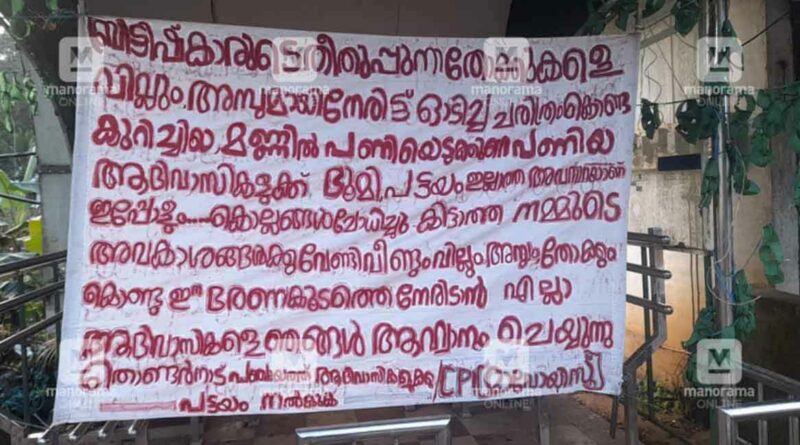 ബ്രിട്ടീഷ്കാരുടെ തീതുപ്പുന്ന തോക്കുകളെ
വില്ലും അമ്പുമായി നേരിട്ട് ഓടിച്ച ചരിത്രംകൊണ്ട
കുറിച്ചിയ, മണ്ണിൽ പണിയെടുക്കുന്ന പണിയ
ആദിവാസികളുക്ക് ഭൂമി, പട്ടയം ഇല്ലാത്ത അവസ്ഥയാണ്
ഇപ്പോളും..... കൊല്ലങ്ങൾ ചോദിച്ചു കിട്ടാത്ത നമ്മുടെ
അവകാശങ്ങൾക്കുവേണ്ടി വീണ്ടും വില്ലും അമ്പും തോക്കും
കൊണ്ടു ഈ ഭരണകൂടത്തെ നേരിടാൻ എല്ലാ
ആദിവാസികളെ ഞങ്ങൾ ആഹ്വാനം ചെയ്യുന്നു
തൊണ്ടർനാട് പഞ്ചായത്ത് ആദിവാസികളുക്കു CPI (മാവോയിസ്റ്റ്)
പട്ടയം നൽകുക
manorama ONLINE